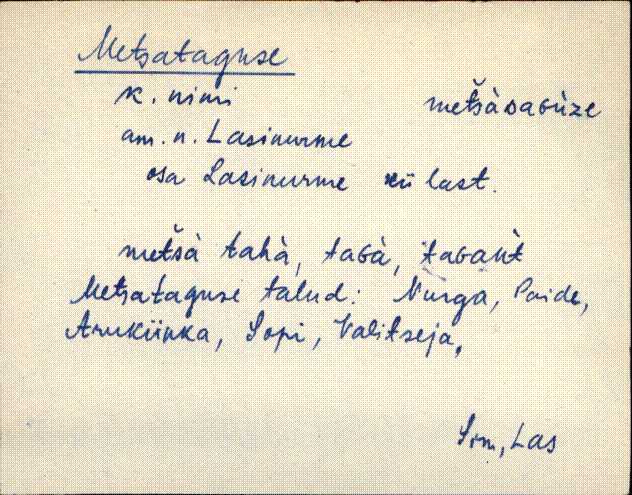 Metsataguse
k. nimi metšàᴅaɢùze
am. n. Lasinurme
osa Lasinurme last.
metšà tahà, taɢà, taɢant̀
Metsataguse talud: Nurga, Paide,
Arukünka, Sopi, Valitseja.
Sim, Las